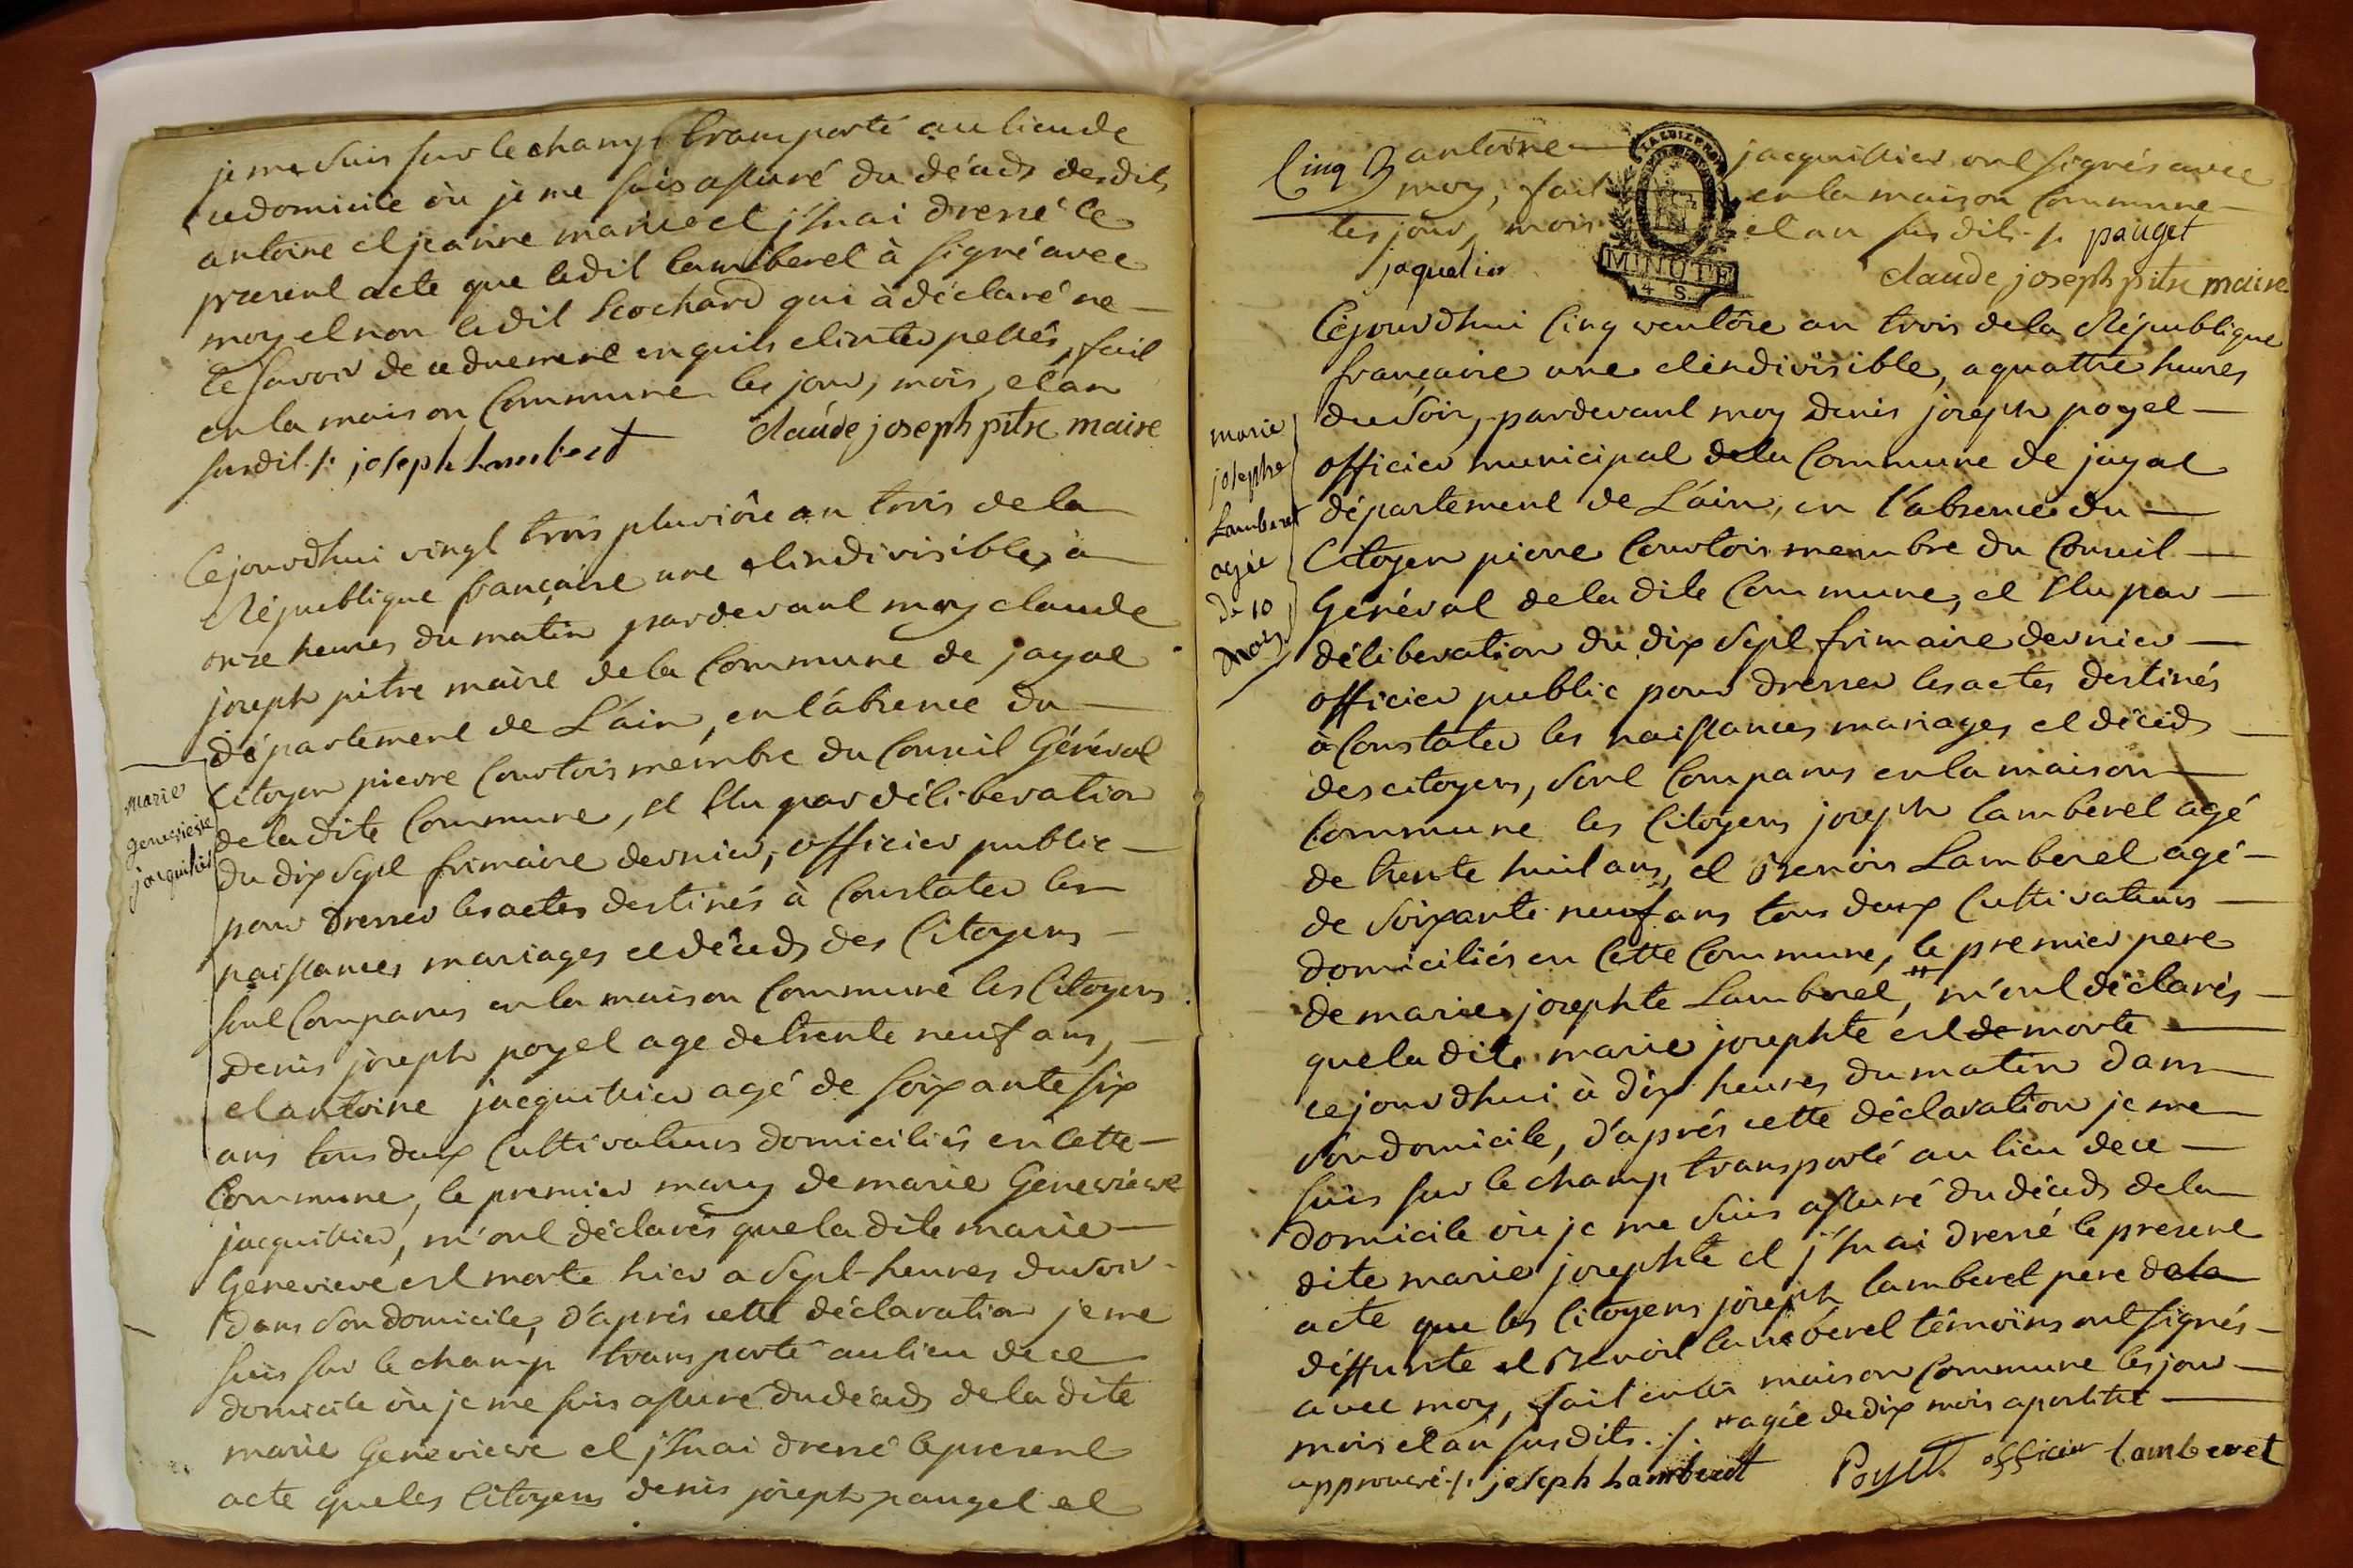 je me suis sur le champ transporté au lieu de
ce domicile où je me suis assuré du décéds desdits
antoine et jeanne marie et j'enai dressé le
present acte que ledit lamberet à signé avec
moy et non ledit Scochard qui à déclaré ne
le savoir de ce duement enquis et interpellés, fait
en la maison Commune les jour, mois, et an
susdit ./. joseph Lamberet claude joseph pitre maire
Cejourdhui vingt trois pluviôse an trois de la
République française une et indivisible, à
onze heures du matin pardevant moy claude
joseph pitre maire de la Commune de jayat
département de L'ain, en l'absence du
Citoyen pierre Courtois membre du Conseil Général
de la dite Commune, et Elu par délibération
du dix sept frimaire dernier, officier public
pour dresser les actes destinés à Constater les
naissances mariages et décéds des Citoyens
sont Comparus en la maison Commune les Citoyens
Denis joseph poget age de trente neuf ans,
et antoine jacquittier agé de soixante six
ans tous deux Cultivateurs domiciliés en Cette
Commune, le premier mary de marie Genevieve
jacquittier, m'ont déclarés que la dite marie
Genevieve est morte hier a sept heures du soir
dans son domicile, d'aprés cette déclaration je me
suis sur le champ transporté au lieu de ce
domicile où je me suis assuré du décéds de la dite
marie Genevieve et j'enai dressé le present
acte que les Citoyens denis joseph pauget et
marie
genevieve
jacquitier
Cinq
antoine jacquittier ont signés avec
moy, fait en la maison Commune
les jour, mois et an susdits ./. pauget
jaquetier claude joseph pitre maire
MINUTE
4 S.
Cejourdhui Cinq ventôse an trois de la République
française une et indivisible, a quattre heures
du soir, pardevant moy denis joseph poget
officier municipal de la Commune de jayat
département de L'ain, en l'absence du
Citoyen pierre Courtois membre du Conseil
Général de la dite Commune, et Elu par
délibération du dix sept frimaire dernier
officier public pour dresser les actes destinés
à Constater les naissances mariages et décéds
des citoyens, sont Comparus en la maison
Commune les Citoyens joseph lamberet agé
de trente huit ans, et Benois Lamberet agé
de soixante neuf ans tous deux Cultivateurs
domiciliés en Cette Commune, le premier pere
de marie josephte Lamberet, # m'ont déclarés
que la dite marie josephte est de morte
ce jourdhui à dix heures du matin dans
son domicile, d'aprés cette déclaration je me
suis sur le champ transporté au lieu de ce
domicile où je me suis assuré du décéds de la
dite marie josephte et j'enai dressé le present
acte que les Citoyens joseph lamberet pere de la
déffunte et Benoit lamberet témoins ont signés
avec moy, fait en la maison Commune les jour
mois et an susdits ./. # agée de dix mois apostille
approuvé ./. joseph Lamberet Poget officier lamberet
marie
josephe
Lamberet
agée
de 10
mois